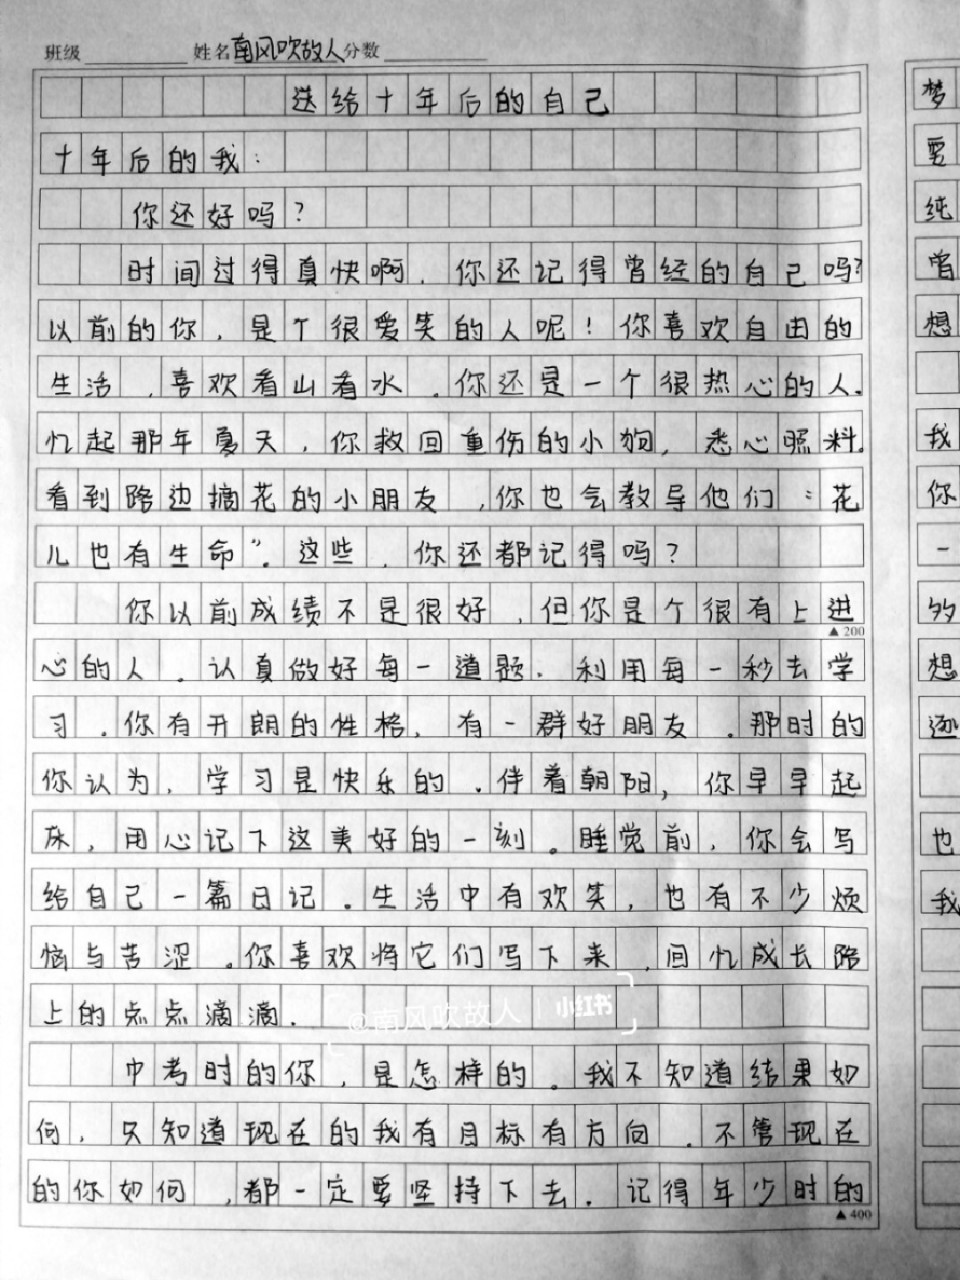 班级 姓名南风吹故人分数
送给十年后的自己
十年后的我：
你还好吗？
时间过得真快啊，你还记得曾经的自己吗？
以前的你，是个很爱笑的人呢！你喜欢自由的
生活，喜欢看山看水。你还是一个很热心的人。
忆起那年夏天，你救回重伤的小狗，悉心照料。
看到路边摘花的小朋友，你也会教导他们：花
儿也有生命”。这些，你还都记得吗？
你以前成绩不是很好，但你是个很有上进
▲200
心的人。认真做好每一道题．利用每一秒去学
习。你有开朗的性格，有一群好朋友。那时的
你认为，学习是快乐的。伴着朝阳，你早早起
床，用心记下这美好的一刻。睡觉前，你会写
给自己一篇日记。生活中有欢笑，也有不少烦
恼与苦涩。你喜欢将它们写下来，回忆成长路
上的点点滴滴．
@南风吹故人 | 小红书
中考时的你，是怎样的。我不知道结果如
何，只知道现在的我有目标有方向。不管现在
的你如何，都一定要坚持下去．记得年少时的
▲400
梦
要
纯
曾
想
我
你
一
的
想
逐
也
我